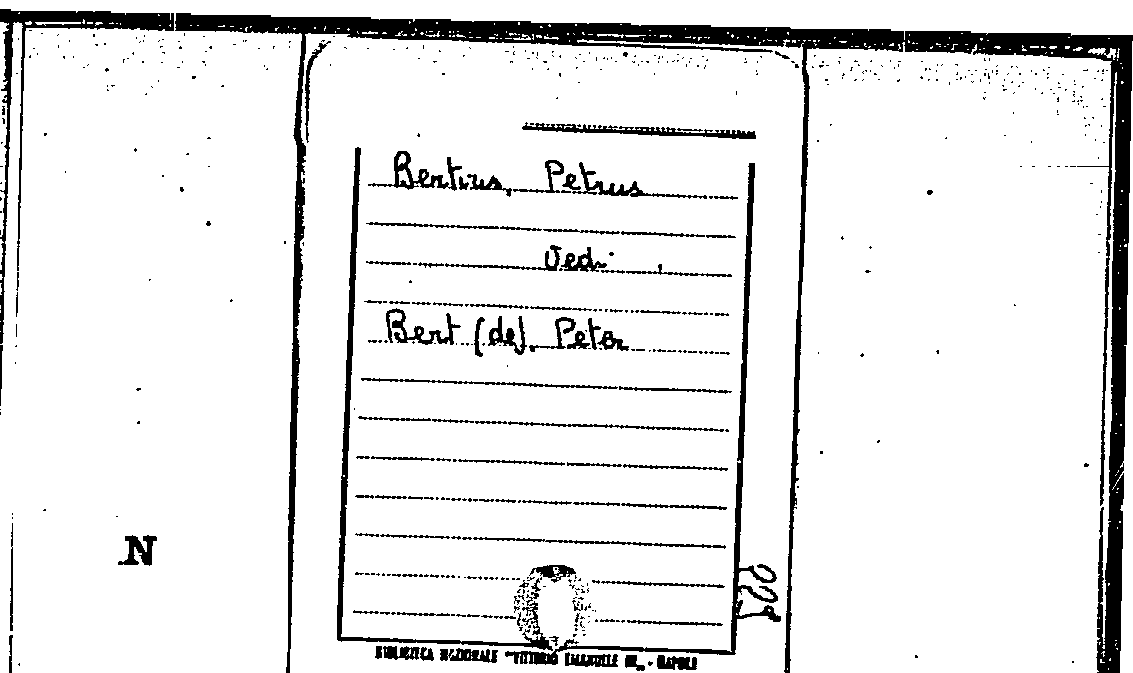 Bertius, Petrus
Vedi
Bert (de), Peter
N
BIBLIOTECA NAZIONALE "VITTORIO EMANUELE III" - NAPOLI